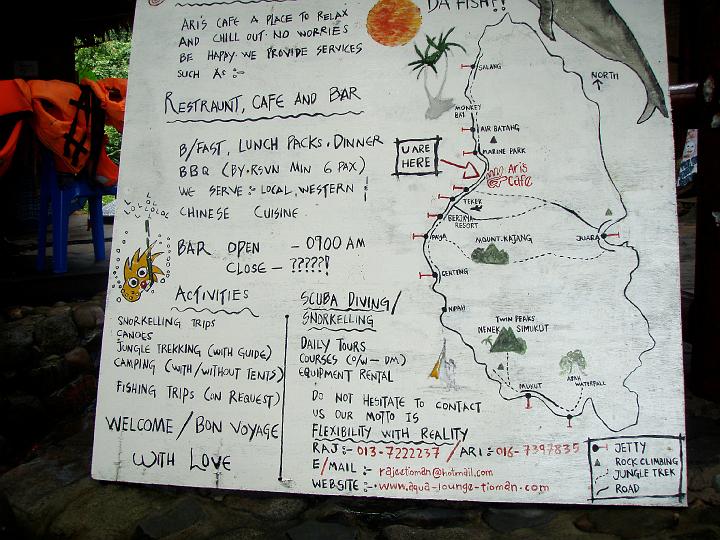 DA FISH!!
ARI'S CAFE A PLACE TO RELAX
AND CHILL OUT. NO WORRIES
BE HAPPY. WE PROVIDE SERVICES
SUCH AS :-
RESTRAUNT, CAFE AND BAR
B/FAST, LUNCH PACKS, DINNER
BBQ (BY. RSVN MIN 6 PAX)
WE SERVE : LOCAL, WESTERN
CHINESE CUISINE.
BAR OPEN - 0900 AM
CLOSE - ?????!
ACTIVITIES
SNORKELLING TRIPS
CANOES
JUNGLE TREKKING (WITH GUIDE)
CAMPING (WITH/WITHOUT TENTS)
FISHING TRIPS (ON REQUEST)
WELCOME / BON VOYAGE
WITH LOVE
SCUBA DIVING/
SNORKELLING
DAILY TOURS
COURSES (O/W - DM)
EQUIPMENT RENTAL
DO NOT HESITATE TO CONTACT
US OUR MOTTO IS
FLEXIBILITY WITH REALITY
RAJ :- 013-7222237 / ARI :- 016-7397835
E/MAIL :- rajeetioman@hotmail.com
WEBSITE :- www.aqua-lounge-tioman.com
NORTH
SALANG
MONKEY
BAY
AIR BATANG
MARINE PARK
U ARE
HERE
Aris
Cafe
TEKEK
BERJAYA
RESORT
PAYA
MOUNT. KAJANG
JUARA
GENTING
NIPAH
TWIN PEAKS
NENEK SIMUKUT
MUKUT
ASAH
WATERFALL
JETTY
ROCK CLIMBING
JUNGLE TREK
ROAD